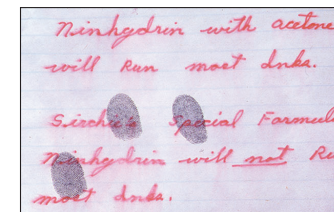 Ninhydrin with acetone
will Run most inks.
Sirchie's Special Formula
Ninhydrin will not Ru
most inks.